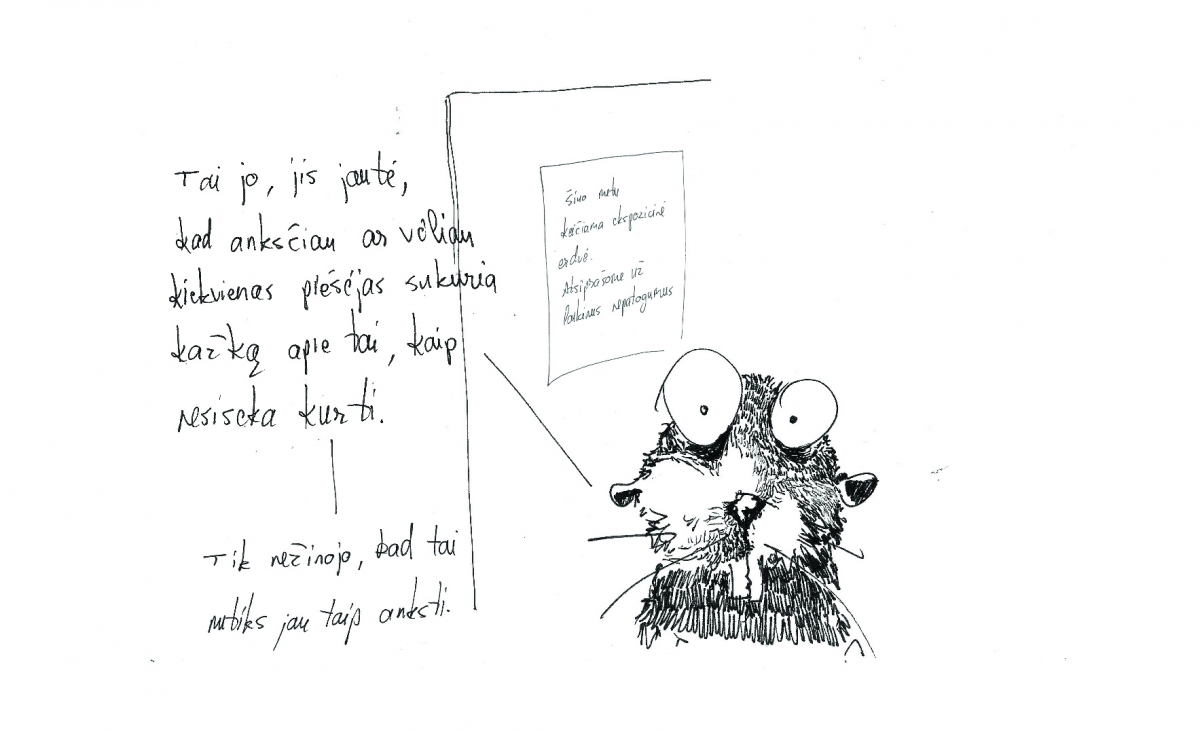 Tai jo, jis jautė,
kad anksčiau ar vėliau
kiekvienas piešėjas sukuria
kažką apie tai, kaip
nesiseka kurti.
Tik nežinojo, kad tai
nutiks jau taip anksti.
Šiuo metu
keičiama ekspozicinė
erdvė.
Atsiprašome už
laikinus nepatogumus